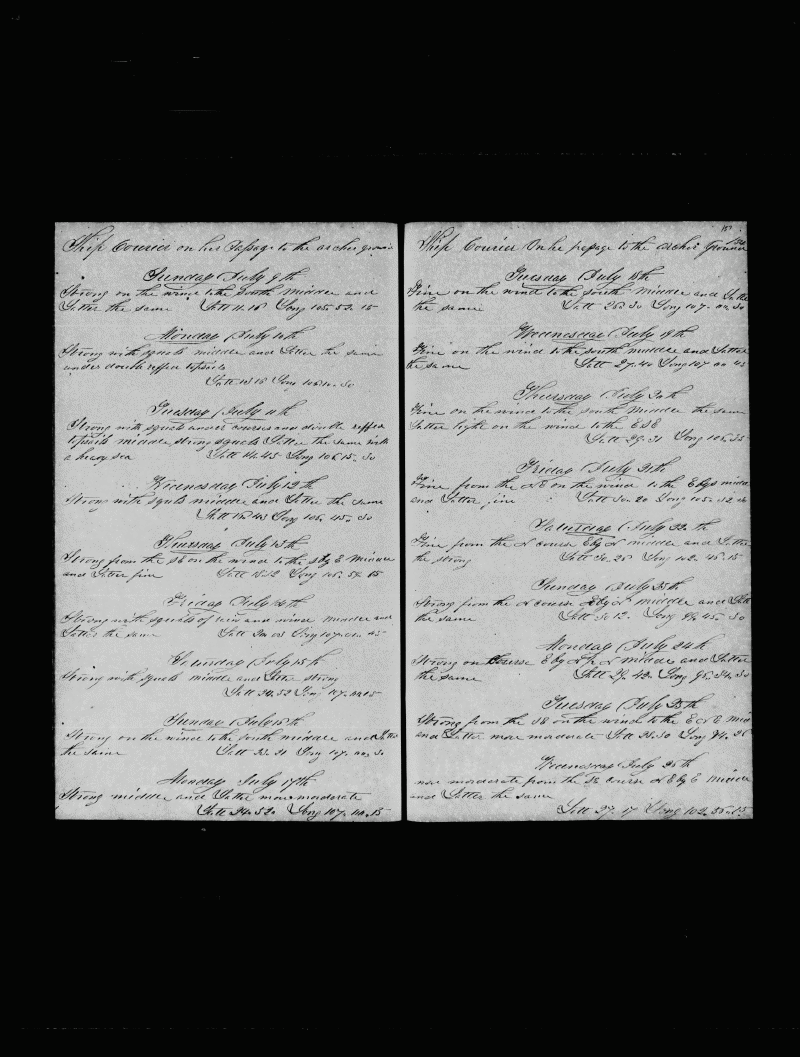 Ship Courier on her Passage to the archer ground
Sunday July 9th
Strong on the wind to the South middle and
Latter the same Latt 11.16 Long 105.53.15
Monday July 10th
Strong with squals middle and Latter the same
under double reffed topsails
Latt 13 15 Long 106
Tuesday July 11th
Strong with squals under courses and double reffed
topsails middle strong squals Latter the same with
a heavy sea Latt 14.45 Long 106.15.30
Wednesday July 12th
Strong with squls middle and Latter the same
Latt Long 106.45.30
Thursday July 13th
Strong from the SE on the wind to the S by E middle
and Latter fine Latt 18.12 Long 106.54.15
Friday July 14th
Strong with squals of rain and wind middle and
Latter the same Latt Long 107 45
Saturday July 15th
Strong with squals middle and Latter strong
Latt 21.52 Long 107 15
Sunday July 16th
Strong on the wind to the south middle and Latter
the same Latt 23.21 Long 107 30
Monday July 17th
Strong middle and Latter more moderate
Latt 24.52 Long 107.00.15
151
Ship Courier On he passage to the archer Ground
Tuesday July 18th
Fine on the wind to the South middle and Latter
the same Latt 26.30 Long 107.00.30
Wednesday July 19th
Fine on the wind to the south middle and Latter
the same Latt 27.40 Long 107 00 45
Thursday July 20th
Fine on the wind to the south middle the same
Latter light on the wind to the ESE
Latt 29.31 Long 106.35
Friday July 21th
Fine from the on the wind to the E by S middle
and Latter fine Latt 30.20 Long 105.32
Saturday July 22th
Fine from the N course E by N middle and Latter
the strong Latt 30.25 Long 102.45.15
Sunday July 23th
Strong from the N course E by N middle and Latt
the same Latt 30 12 Long 99.45.30
Monday July 24th
Strong on course E by N middle and Latter
the same Latt 29.42 Long 95.34.30
Tuesday July 25th
Strong from the SE on the wind to the middle
and Latter more moderate Latt 28.30 Long 94.
Wednesday July 26th
more moderate from the SE course E by E middle
and Latter the same
Latt 27.17 Long 102.35.15